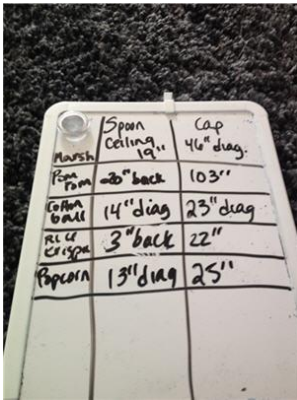 Spoon Cap
Ceiling 46" diag.
Marsh 19"
Pom Pom 20" back 103"
Cotton ball 14" diag 23" diag
Rice Crispx 3" back 22"
Popcorn 13" diag 25"